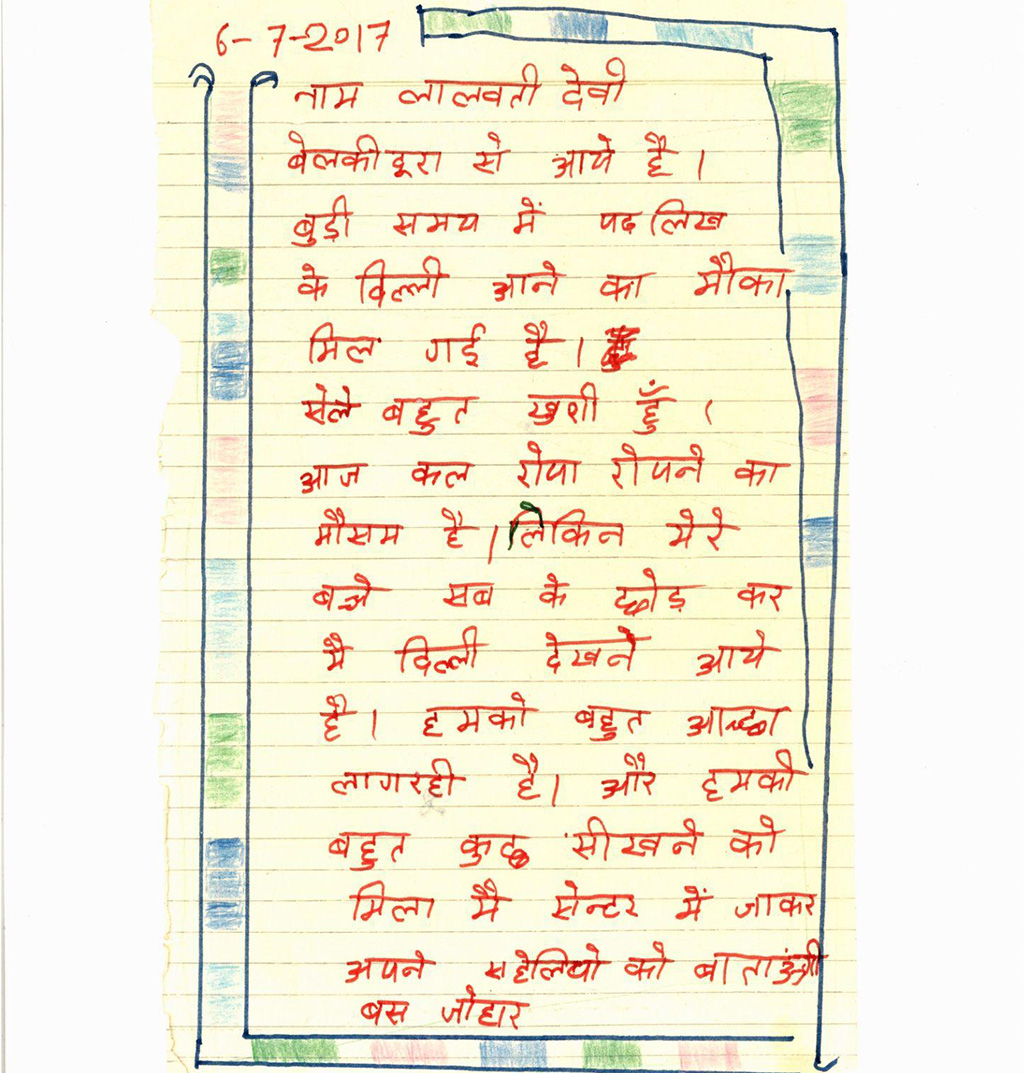 6-7-2017
नाम लालवती देवी
बेलकीडूरा से आये है।
बुड़ी समय में पढ़ लिख
के दिल्ली आने का मौका
मिल गई है।
सेले बहुत खुशी हुँ।
आज कल रोपा रोपने का
मौसम है। लेकिन मेरे
बच्चे सब के छोड़ कर
मै दिल्ली देखने आये
है। हमको बहुत आच्छा
लागरही है। और हमको
बहुत कुछ सीखने को
मिला मै सेन्टर में जाकर
अपने सहेलियो को बाताऊंगी
बस जोहार